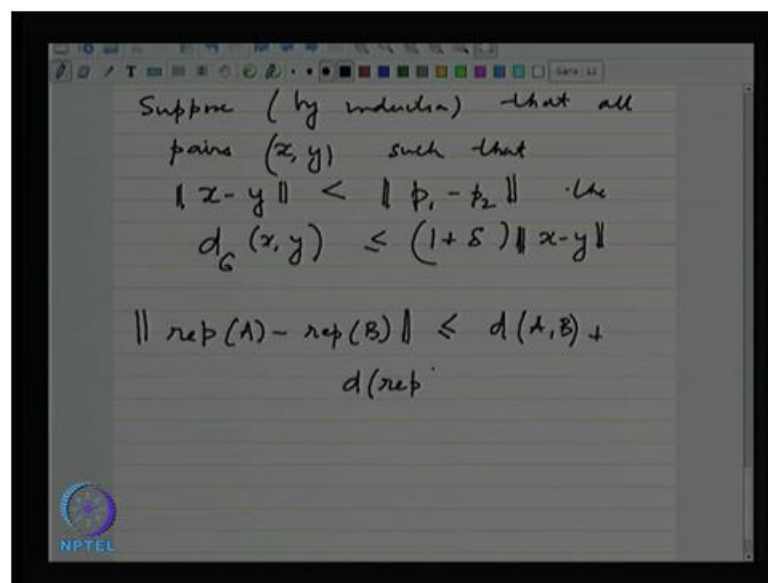 T Sans 12
Suppose (by induction) that all
pairs (x, y) such that
‖ x - y ‖ < ‖ p₁ - p₂ ‖ the
d_G (x, y) ≤ (1 + δ) ‖ x - y ‖
‖ rep(A) - rep(B) ‖ ≤ d(A, B) +
d(rep
NPTEL